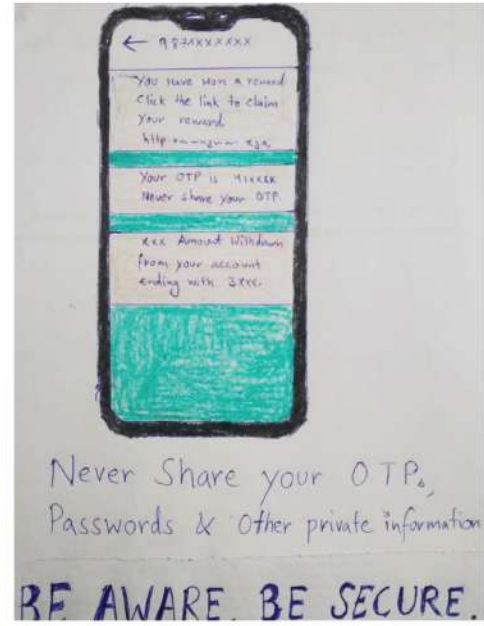 ← 987xxxxxxx
You Have Won a reward
Click the link to claim
Your reward
Your OTP is 41xxxx
Never Share Your OTP
xxx Amount Withdawn
from your account
ending with 3xxx.
Never Share your OTP,
Passwords & Other private information
BE AWARE. BE SECURE.